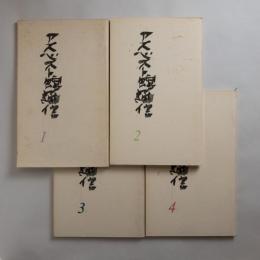 アスベスト館通信
1
アスベスト館通信
2
館通信
3
館通信
4